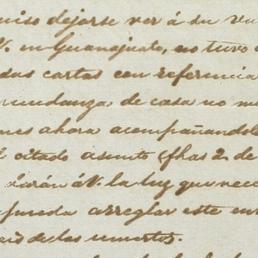 quiso dejarse ver á su vu
V. en Guanajuato, no tuvo
das cartas con referencia
mudanza de casa no me
nes ahora acompañandole
l citado asunto (fhas 2 de
darán á V. la luz que nece
pueda arreglar este
de los muertos.